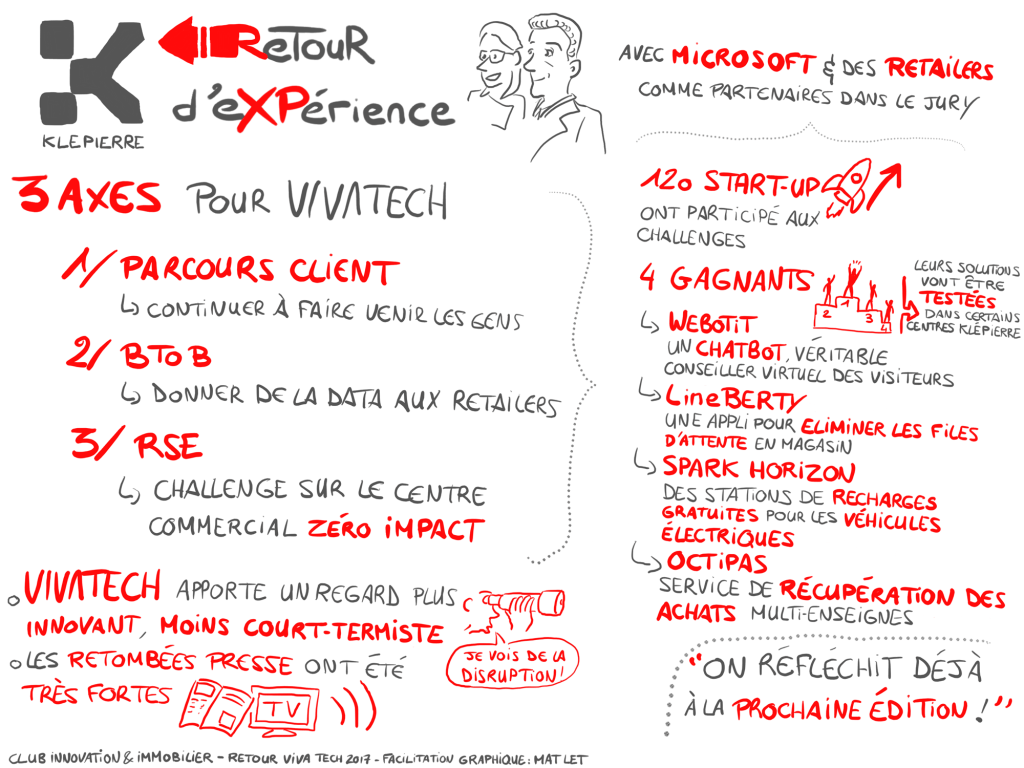 KLEPIERRE
ReTouR
d'eXPérience
AVEC MiCROSOFT & DES RETAiLERS
COMME PARTENAIRES DANS LE JURY
3 AXES POUR VIVATECH
1/ PARCOURS CLiENT
CONTINUER À FAIRE VENIR LES GENS
2/ BTOB
DONNER DE LA DATA AUX RETAILERS
3/ RSE
CHALLENGE SUR LE CENTRE
COMMERCIAL ZÉRO iMPACT
VIVATECH APPORTE UN REGARD PLUS
INNOVANT, MOINS COURT-TERMISTE
JE VOIS DE LA
DISRUPTION!
LES RETOMBÉES PRESSE ONT ÉTÉ
TRÈS FORTES
TV
120 START-UP
ONT PARTICIPÉ AUX
CHALLENGES
4 GAGNANTS
2 1 3 4
LEURS SOLUTIONS
VONT ÊTRE
TESTÉES
DANS CERTAINS
CENTRES KLÉPIERRE
WEBOTiT
UN CHATBOT, VÉRITABLE
CONSEILLER VIRTUEL DES VISITEURS
LineBERTY
UNE APPLI POUR ELIMINER LES FILES
D'ATTENTE EN MAGASIN
SPARK HORIZON
DES STATIONS DE RECHARGES
GRATUITES POUR LES VÉHICULES
ÉLECTRIQUES
OCTIPAS
SERVICE DE RÉCUPÉRATION DES
ACHATS MULTI-ENSEIGNES
"ON RÉFLÉCHIT DÉJÀ
À LA PROCHAINE ÉDITION !"
CLUB INNOVATION & iMMOBILIER - RETOUR ViVA TECH 2017 - FACILITATION GRAPHIQUE: MAT LET